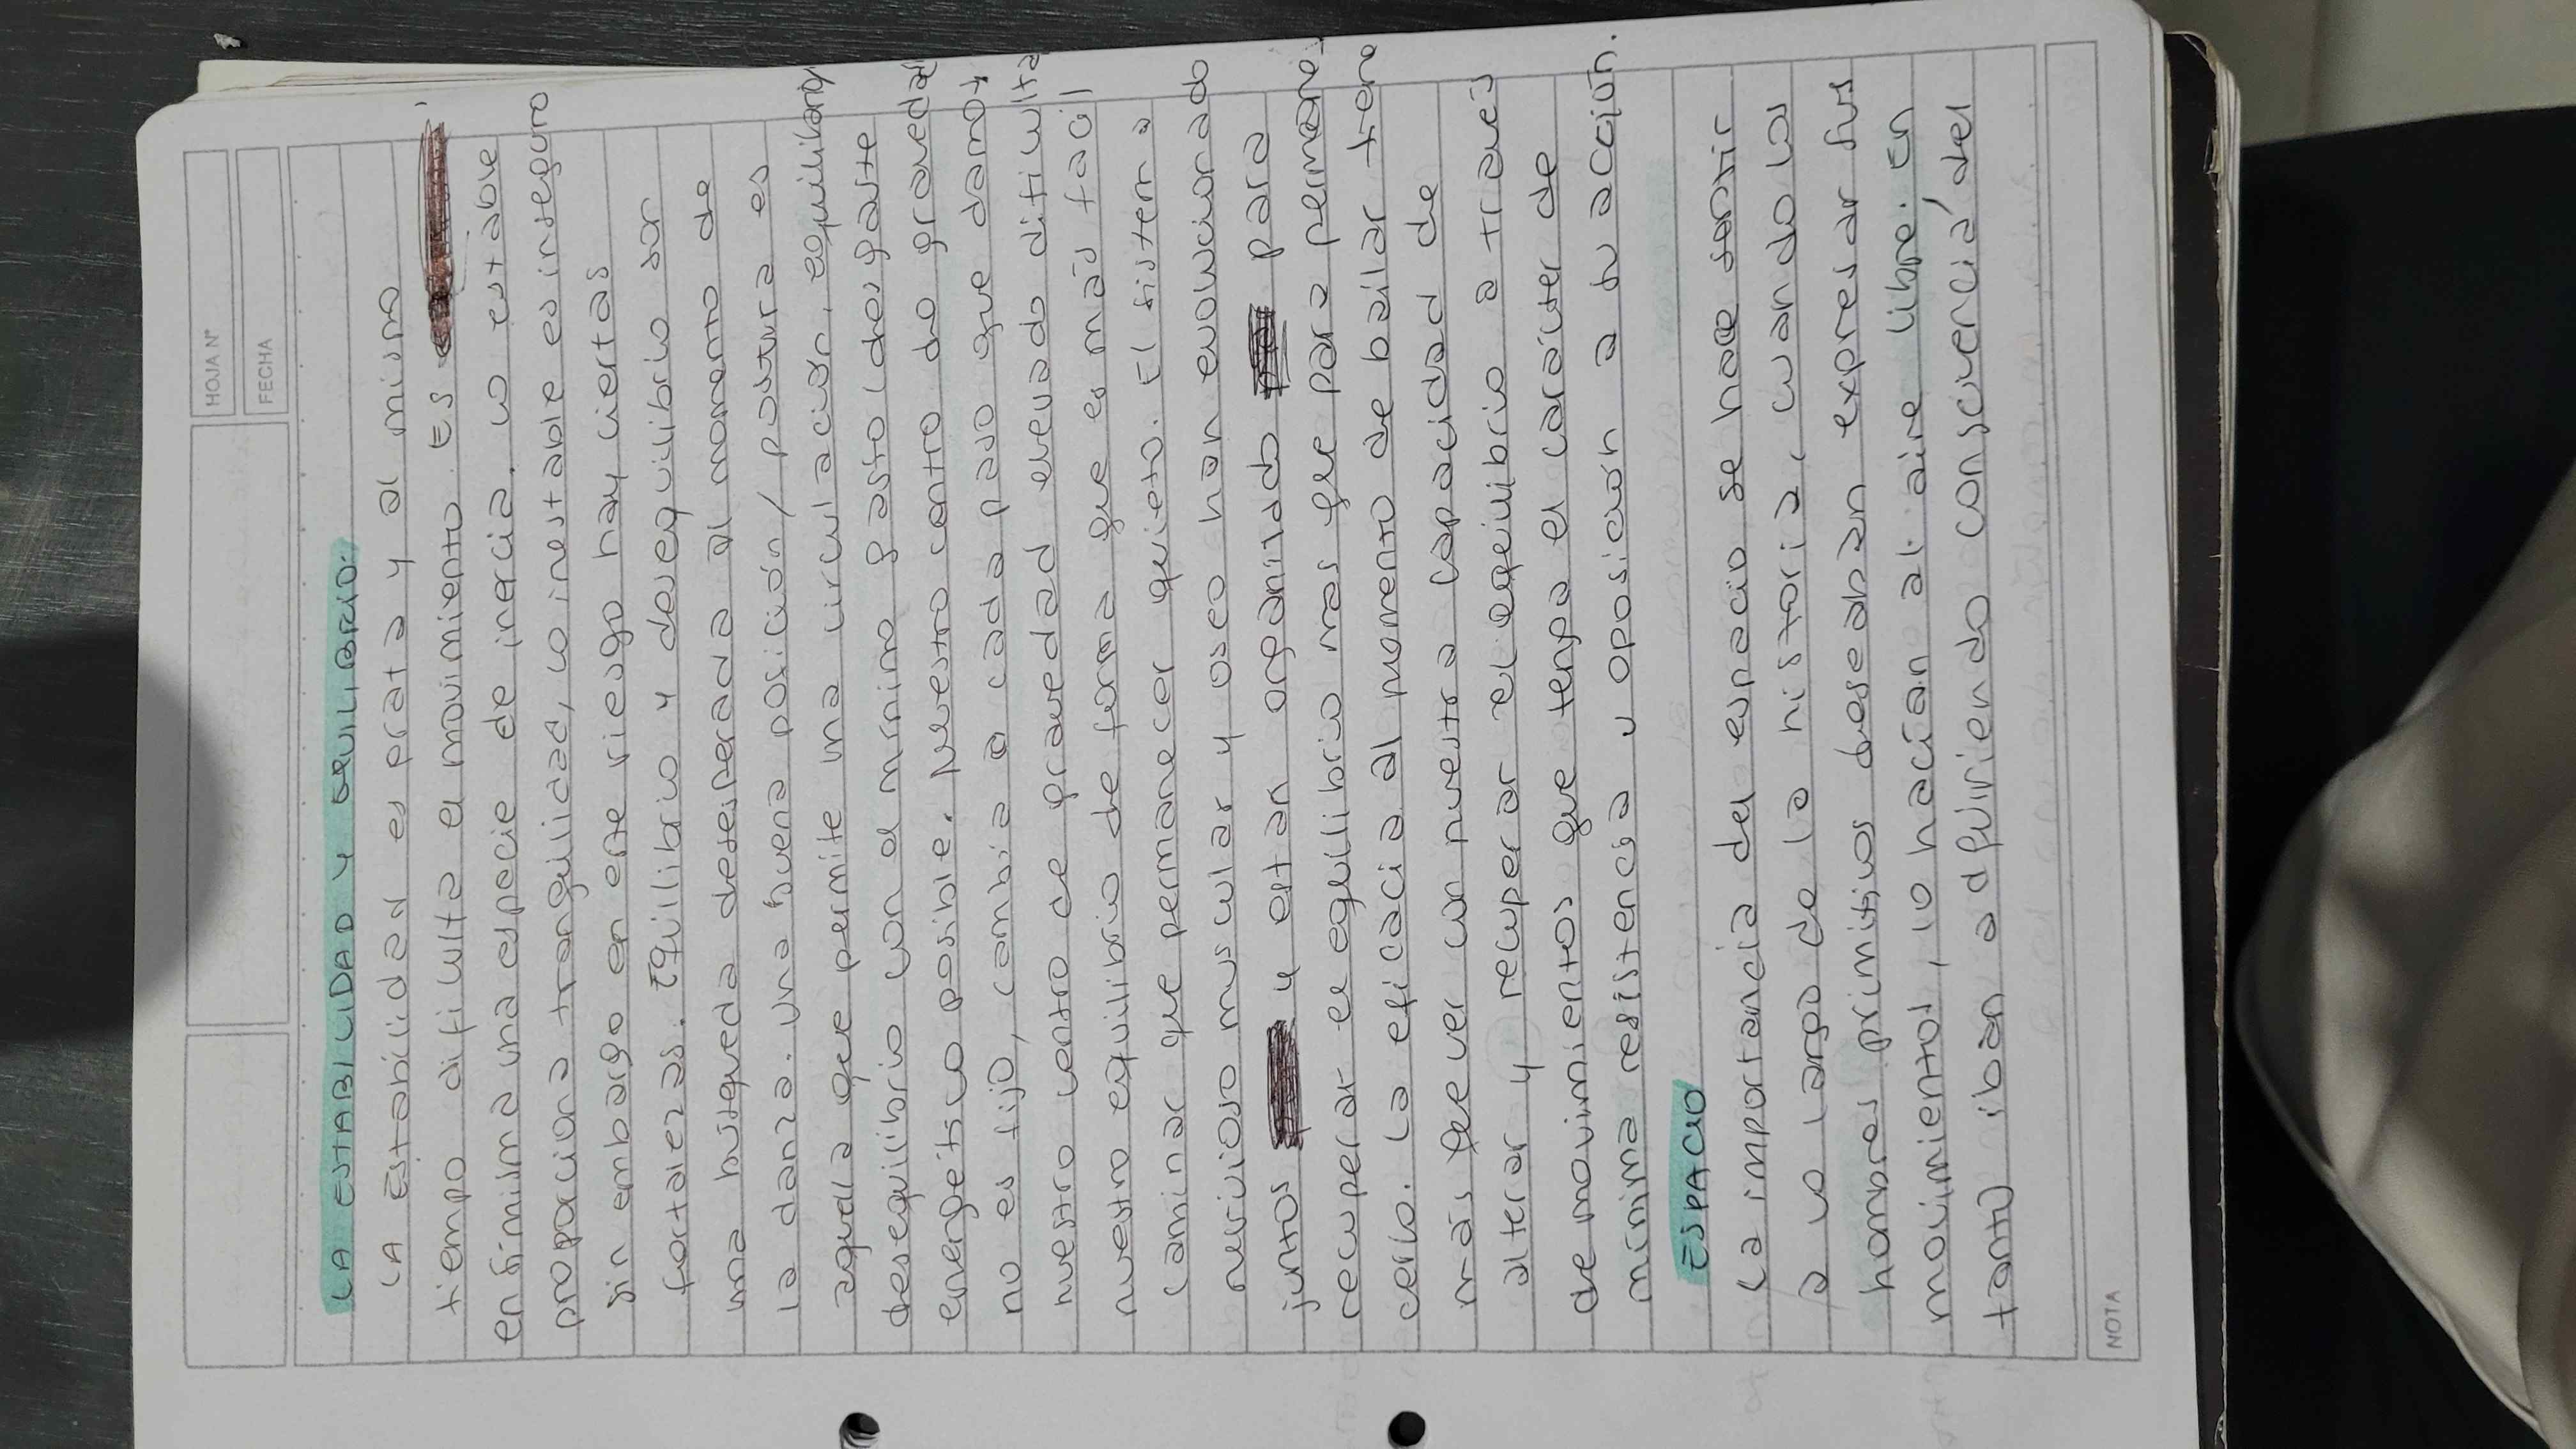 HOJA Nº
FECHA
LA ESTABILIDAD Y EQUILIBRIO:
LA EStabilidad es grata y al mismo
tiempo dificulta el movimiento. ES
en simisma una especie de inercia. lo estable
proporciona tranquilidad, lo inestable es inseguro
sin embargo en este riesgo hay ciertas
fortalezas. Equilibrio y desequilibrio son
una busqueda desesperada al momento de
la danza. una buena posición / postura es
aquella que permite una circulación, equilibrio y
desequilibrio con el minimo gasto (desgaste
energético posible. Nuestro centro de gravedad
no es fijo, cambia a cada paso que damos,
nuestro centro de gravedad elevado dificulta
nuestro equilibrio de forma que es más facil
caminar que permanecer quieto. El sistema
nervioso muscular y oseo han evolucionado
juntos y estan organizado para
recuperar el equilibrio mas que para permane_
cerlo. La eficacia al momento de bailar tiene
más que ver con nuestra capacidad de
alterar y recuperar el equilibrio a traves
de movimientos que tenga el carácter de
minima resistencia u oposición a su acción.
ESPACIO
La importancia del espacio se hace sentir
a lo largo de la historia, cuando los
hombres primitivos deseaban expresar sus
movimientos, lo hacían al aire libre. En
tanto iban adquiriendo consciencia del
NOTA